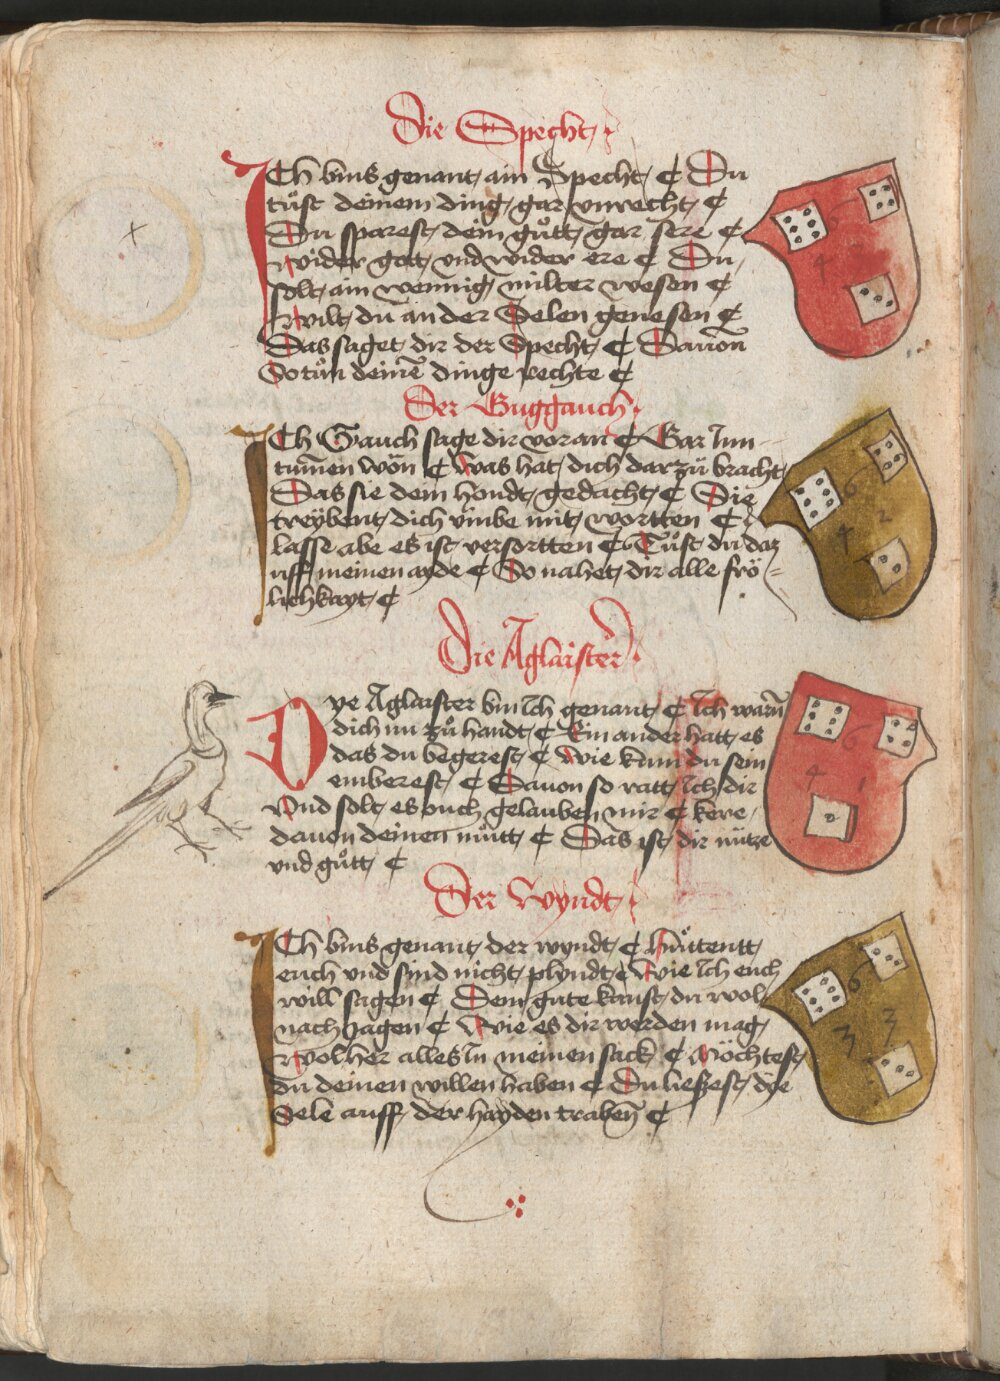 Die Specht
ICh bins genant ain Specht ¢ Du
tůst deinem ding gar vnrecht ¢
Du sparest dein gůtt gar sere ¢
wider got vnd wider ere ¢ Du
solt ain wennig milter wesen ¢
wilt du an der Selen genesen ¢
Das saget dir der Specht ¢ Dauon̄
So tůn deinē dinge rechte ¢
Der Guggauch
ICh Gauch sage dir voran ¢ Gar Inn
tum̄en wön ¢ was hat dich darzů bracht
Das sie dein hondt gedacht ¢ Die
treybent dich vmbe mit wortten ¢
lasse abe es ist versortten ¢ Tůst du daz
uff meinen ayde ¢ So nahet dir alle frö=
lichkayt ¢
Die Aglaister
Dye Aglaister bin Ich genant ¢ Ich warn̄
dich nu zů handt ¢ Ein ander hatt es
das du begerest ¢ wie kann du sein
emberest ¢ Dauon so ratt Ich dir
vnd solt es ouch gelauben mir ¢ kere
dauon deinen můtt ¢ Das ist dir nütze
vnd gůtt ¢
Der Wyndt
ICh bins genant der wyndt ¢ hůttentt
euch vnd sind nicht plyndt ¢ Wie Ich euch
will sagen ¢ Dem gute kanst du wol
nach Jagen ¢ Wie es dir werden mag
wol her alles In meinen sack ¢ Möchtest
du deinen willen haben ¢ Du liessest die
Sele auff der hayden traben̄ ¢
6
4
6
4 2
6
4 1
6
3 3